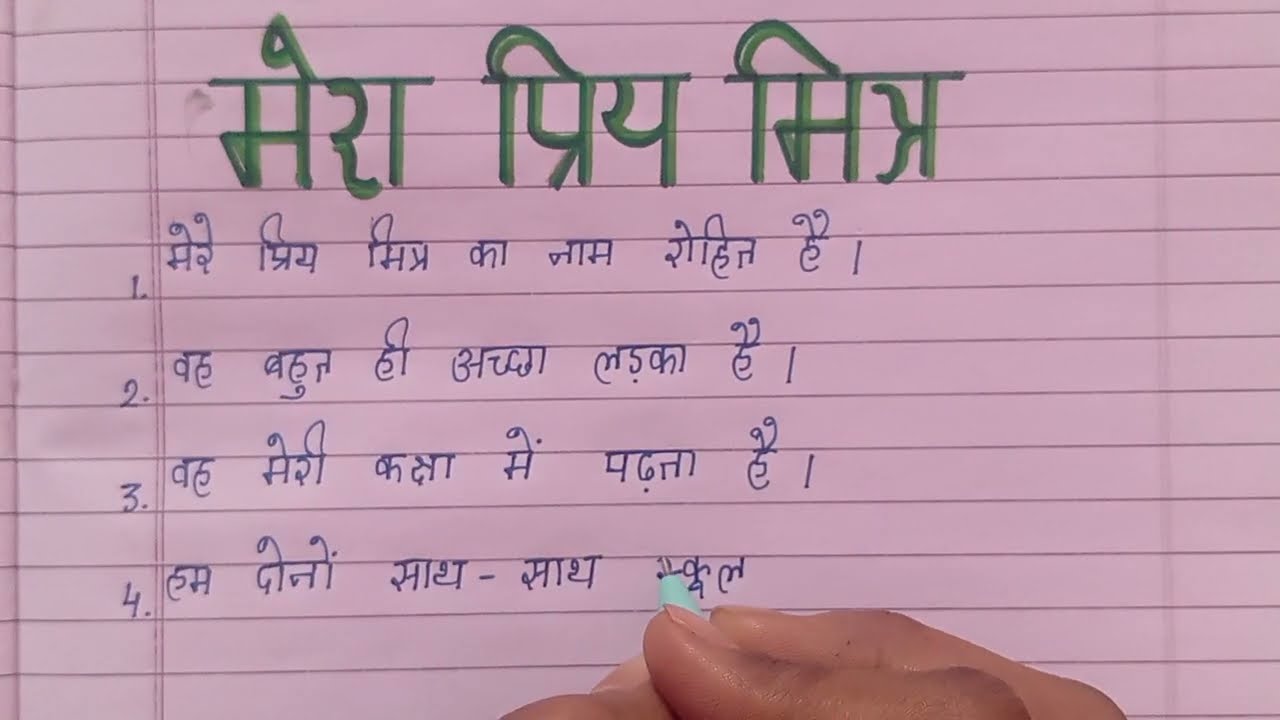 मेरा प्रिय मित्र
1. मेरे प्रिय मित्र का नाम रोहित है ।
2. वह बहुत ही अच्छा लड़का है ।
3. वह मेरी कक्षा में पढ़ता है ।
4. हम दोनों साथ - साथ स्कूल